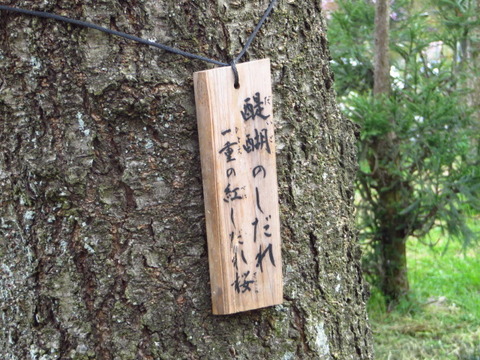 醍醐のしだれ
一重の紅しだれ桜